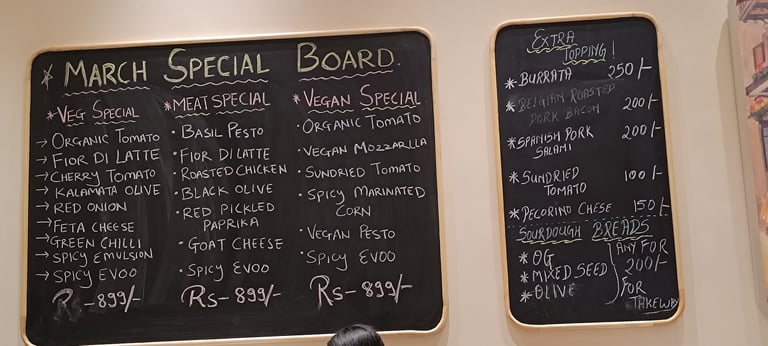 * MARCH SPECIAL BOARD.
* VEG SPECIAL
→ ORGANIC TOMATO
→ FIOR DI LATTE
→ CHERRY TOMATO
→ KALAMATA OLIVE
→ RED ONION
→ FETA CHEESE
→ GREEN CHILLI
→ SPICY EMULSION
→ SPICY EVOO
Rs-899/-
* MEAT SPECIAL
• BASIL PESTO
• FIOR DI LATTE
• ROASTED CHICKEN
• BLACK OLIVE
• RED PICKLED
PAPRIKA
• GOAT CHEESE
• SPICY EVOO
Rs-899/-
* VEGAN SPECIAL
• ORGANIC TOMATO
• VEGAN MOZZARILLA
• SUNDRIED TOMATO
• SPICY MARINATED
CORN
• VEGAN PESTO
• SPICY EVOO
Rs-899/-
EXTRA
TOPPING!
* BURRATA 250/-
* BELGIAN ROASTED
PORK BACON 200/-
* SPANISH PORK
SALAMI 200/-
* SUNDRIED
TOMATO 100/-
* PECORINO CHESE 150/-
SOURDOUGH BREADS
* OG
* MIXED SEED
* OLIVE
ANY FOR
200/-
FOR